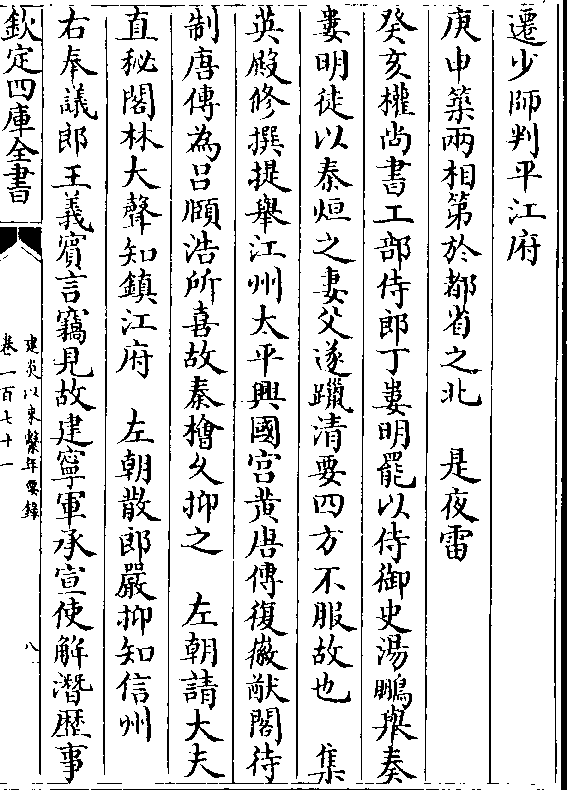 遷少師判平江府
庚申築兩相第於都省之北　是夜雷
癸亥權尚書工部侍郎丁婁明罷以侍御史湯鵬舉奏
婁明徒以秦烜之妻父遂躐清要四方不服故也　集
英殿修撰提舉江州太平興國宫黄唐傅復徽猷閣待
制唐傅為吕頤浩所喜故秦檜久抑之　左朝請大夫
直秘閣林大聲知鎮江府　左朝散郎嚴抑知信州
右奉議郎王義賔言竊見故建寧軍承宣使解潛歴事
欽定四庫全書
建炎以來繫年要錄
卷一百七十一
八